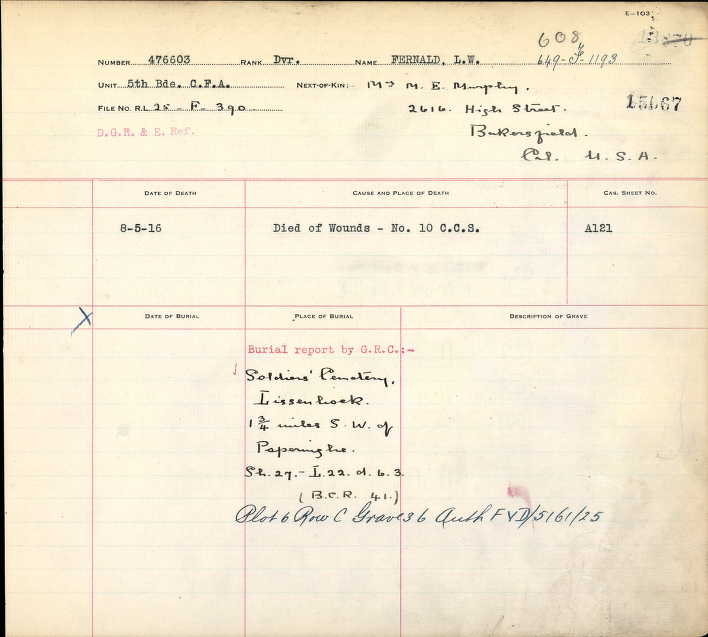 E-103
608
NUMBER 476603 RANK Dvr. NAME FERNALD, L.W. 649-F-1193
UNIT 5th Bde. C.F.A. NEXT-OF-KIN:- Mrs M. E. Murphy.
FILE No. R.L. 25 - F - 390 2616. High Street.
15067
D.G.R. & E. Ref. Bakersfield.
Cal. U. S. A.
DATE OF DEATH CAUSE AND PLACE OF DEATH CAS. SHEET NO.
8-5-16 Died of Wounds - No. 10 C.C.S. A121
X
DATE OF BURIAL PLACE OF BURIAL DESCRIPTION OF GRAVE
Burial report by G.R.C.:-
Soldiers' Cemetery,
Lissenhoek.
1 3/4 miles S. W. of
Poperinghe.
Sh. 27. - L. 22. d. 6. 3.
( B.C.R. 41.)
Plot 6 Row C Grave 36 Auth F VD/5161/25